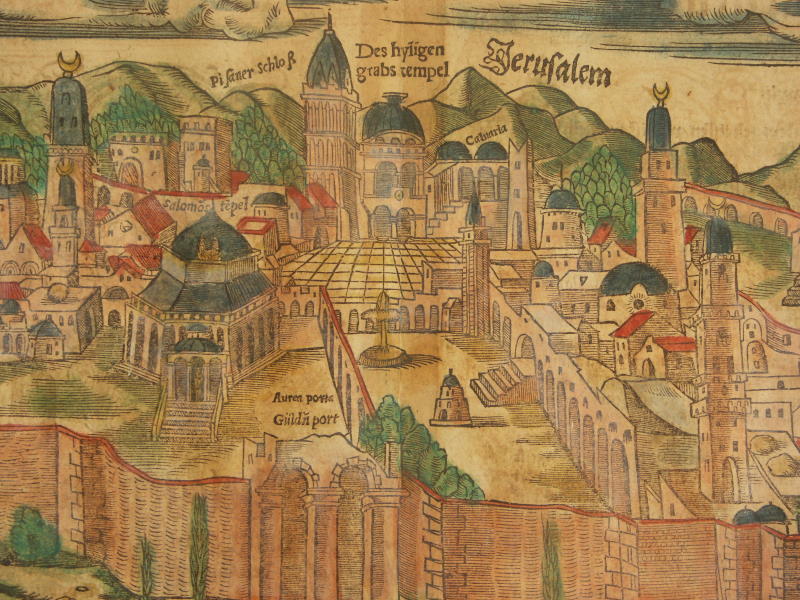 Pisaner Schloß
Des hyligen
grabs tempel
Jerusalem
Calvaria
Salomōs tēpel
Aurea porta
Güldī port